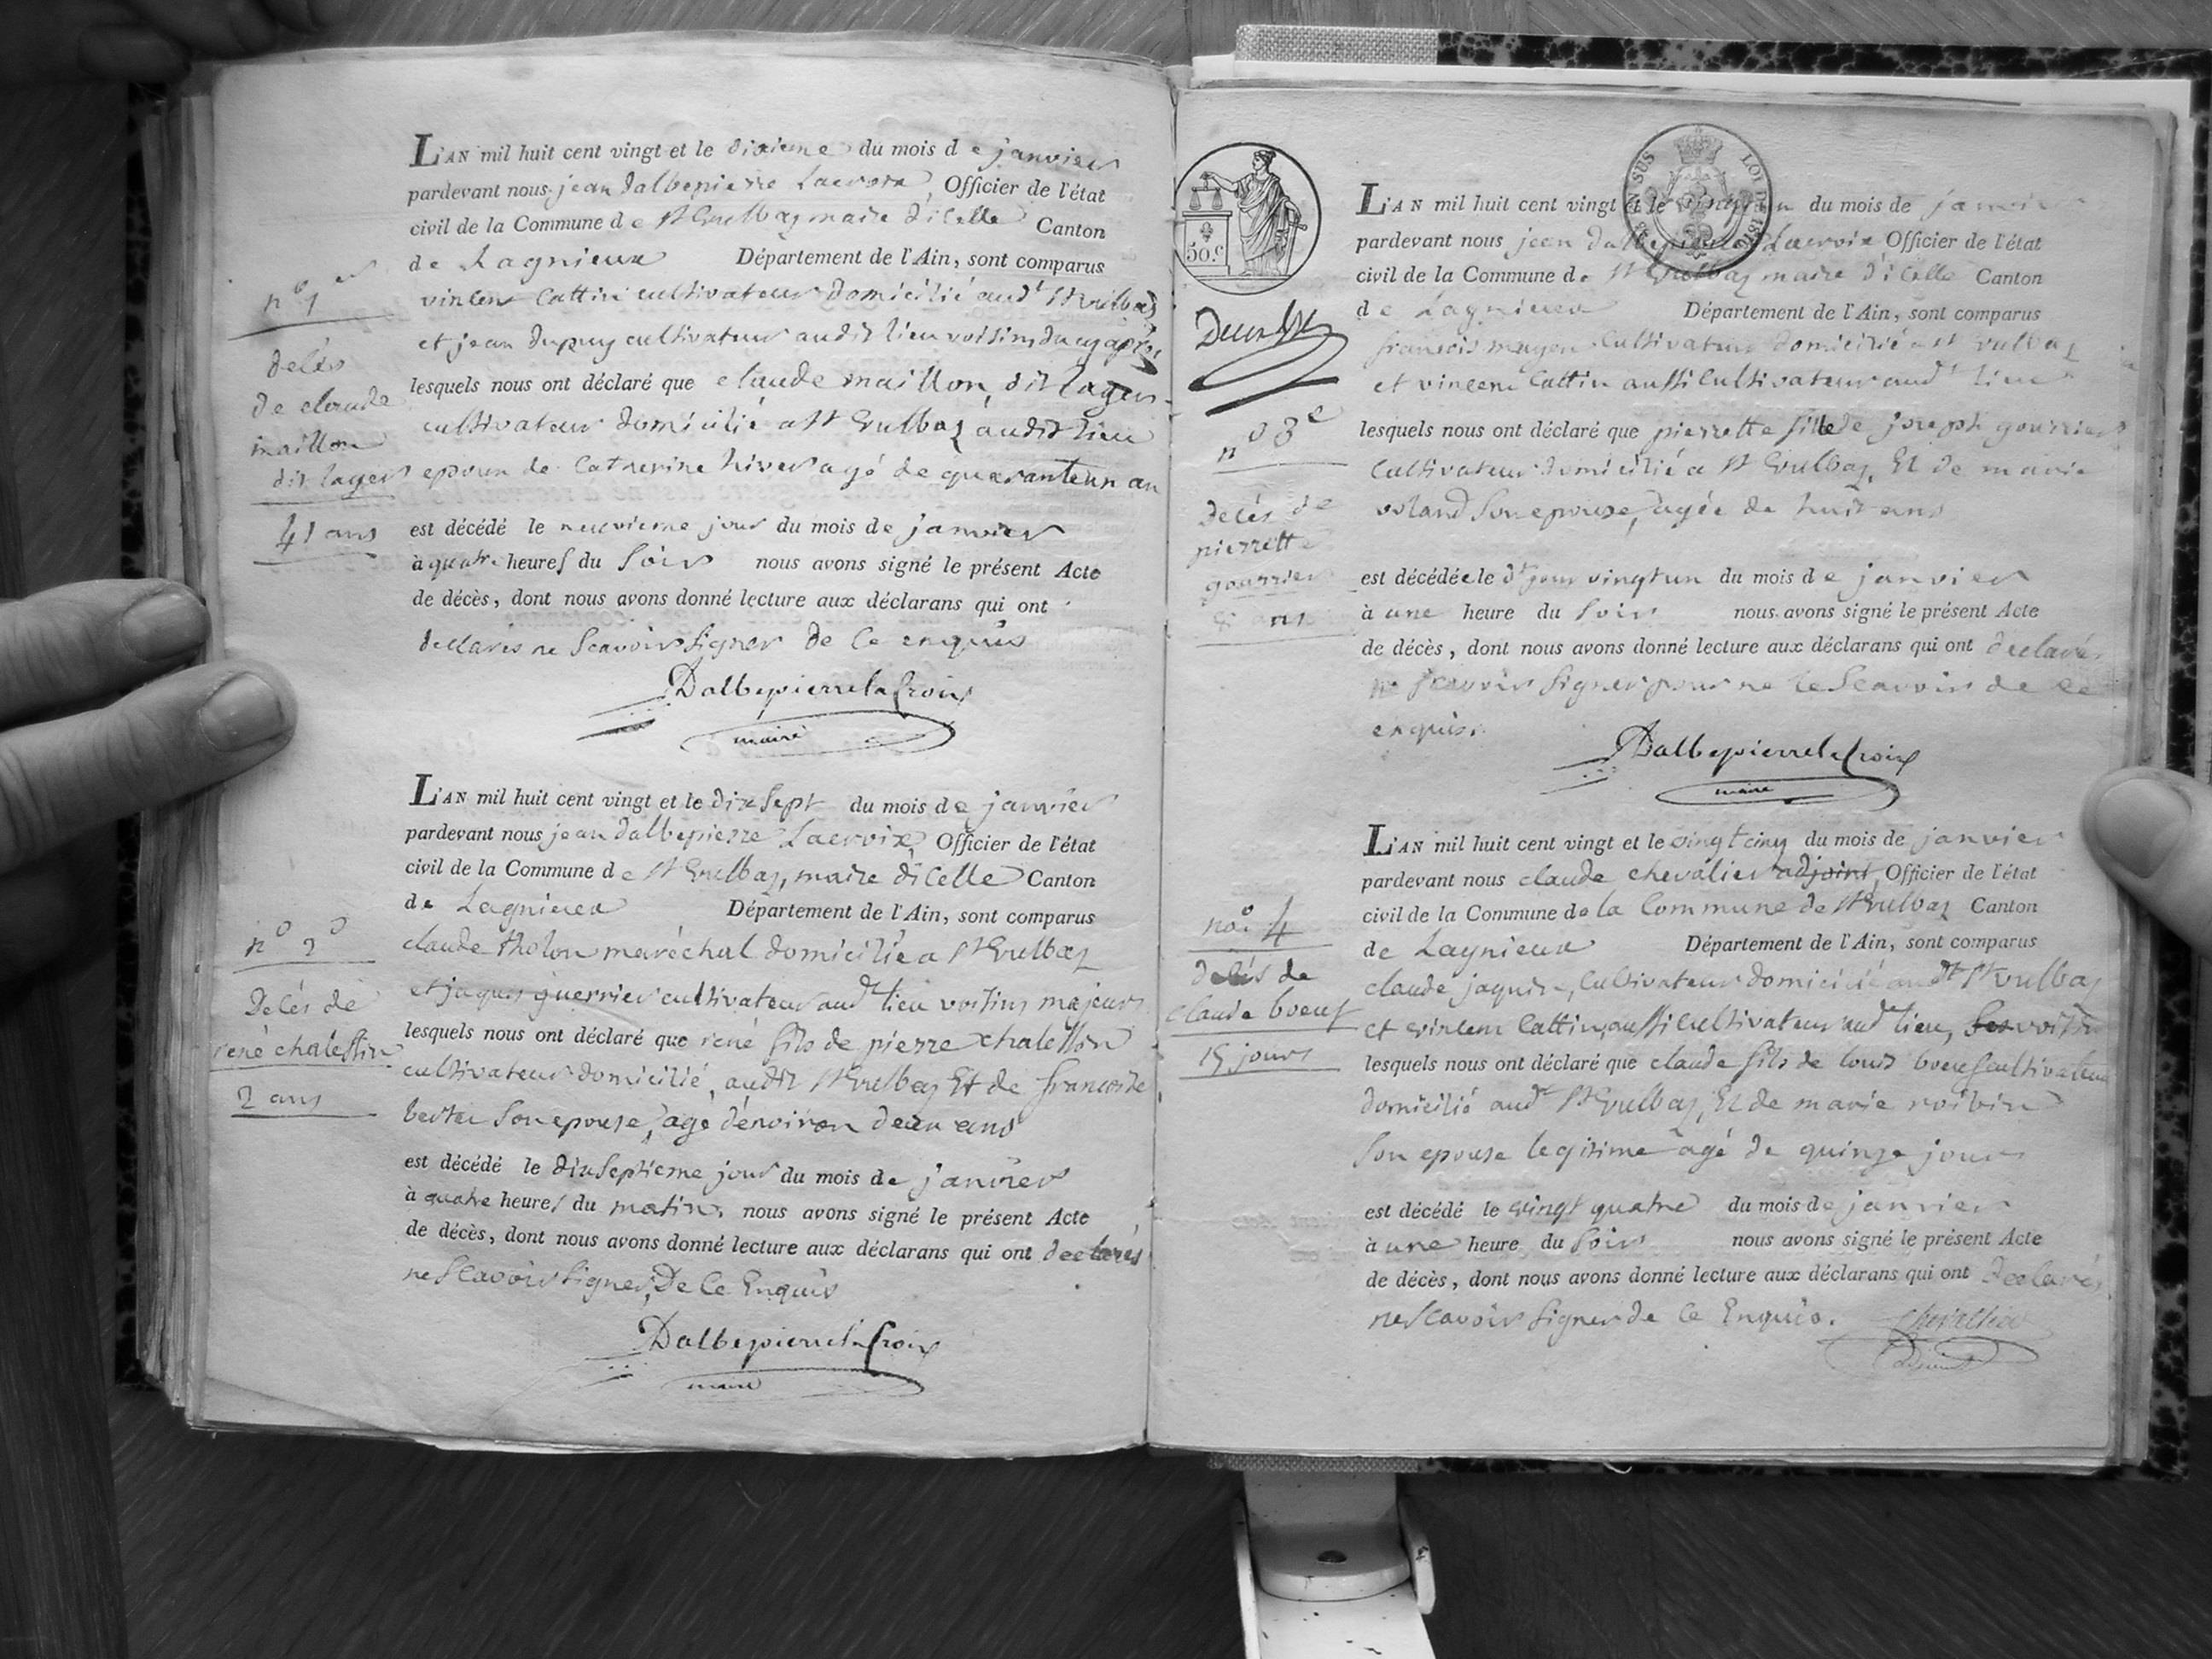 L'AN mil huit cent vingt et le dixieme du mois de janvier
pardevant nous jean dalbepierre Lacroix, Officier de l'état
civil de la Commune de St Vulbaz maire dicelle Canton
de Lagnieux Département de l'Ain, sont comparus
vincent Cattin cultivateur domicilié audt St vulbaz
et jean dupuy cultivateur audit lieu voisins
lesquels nous ont déclaré que claude maillon, dit lager
cultivateur domicilié a St Vulbaz audit lieu
epoux de Catherine hiver agé de quaranteun an
est décédé le neuvieme jour du mois de janvier
à quatre heures du Soir nous avons signé le présent Acte
de décès, dont nous avons donné lecture aux déclarans qui ont
declarés ne Scavoir Signer de Ce enquis
DalbepierrelaCroix
maire
n° 1er
decés
de claude
maillon
dit lager
41 ans
L'AN mil huit cent vingt et le dix Sept du mois de janvier
pardevant nous jean dalbepierre Lacroix, Officier de l'état
civil de la Commune de St Vulbaz, maire dicelle Canton
de Lagnieux Département de l'Ain, sont comparus
claude tholon maréchal domicilié a St Vulbaz
et jaques guerrier cultivateur audt lieu voisins majeurs
lesquels nous ont déclaré que rené fils de pierre chalesson
cultivateur domicilié, audit St Vulbaz Et de francoise
berter Son epouse, agé d'environ deux ans
est décédé le dixSeptieme jour du mois de janvier
à quatre heures du matin, nous avons signé le présent Acte
de décès, dont nous avons donné lecture aux déclarans qui ont declarés
ne Scavoir Signer, De Ce Enquis
DalbepierrelaCroix
maire
n° 2°
Decés de
rené chalessin
2 ans
50 c.
LOI DE 1816
L'AN mil huit cent vingt et le vingt un du mois de janvier
pardevant nous jean dalbepierre Lacroix Officier de l'état
civil de la Commune de St Vulbaz maire dicelle Canton
de Lagnieux Département de l'Ain, sont comparus
francois mayen Cultivateur domicilié a St vulbaz
et vincent Cattin aussi Cultivateur audt lieu
lesquels nous ont déclaré que pierrette fille de joseph gourrier
Cultivateur domicilié a St Vulbaz, Et de marie
voland Son epouse, agée de huit ans
est décédée le dt jour vingt un du mois de janvier
à une heure du Soir nous avons signé le présent Acte
de décès, dont nous avons donné lecture aux déclarans qui ont declarés
ne Scavoir Signer pour ne le Scavoir de ce
enquis.
DalbepierrelaCroix
maire
n° 3e
Decés de
pierrette
gourrier
8 ans
L'AN mil huit cent vingt et le vingt cinq du mois de janvier
pardevant nous claude chevalier adjoint, Officier de l'état
civil de la Commune de la Commune de St Vulbaz Canton
de Lagnieux Département de l'Ain, sont comparus
claude jaquin, Cultivateur domicilié audt St vulbaz
et vincent Cattin, aussi Cultivateur audt lieu, voisin
lesquels nous ont déclaré que claude fils de louis boeuf cultivateur
domicilié audt St Vulbaz, Et de marie roibin
Son epouse legitime agé de quinze jours
est décédé le vingt quatre du mois de janvier
à une heure du Soir nous avons signé le présent Acte
de décès, dont nous avons donné lecture aux déclarans qui ont declarés
ne Scavoir Signer de Ce Enquis.
Chevallier
adjoint
no. 4
decés de
claude boeuf
15 jours